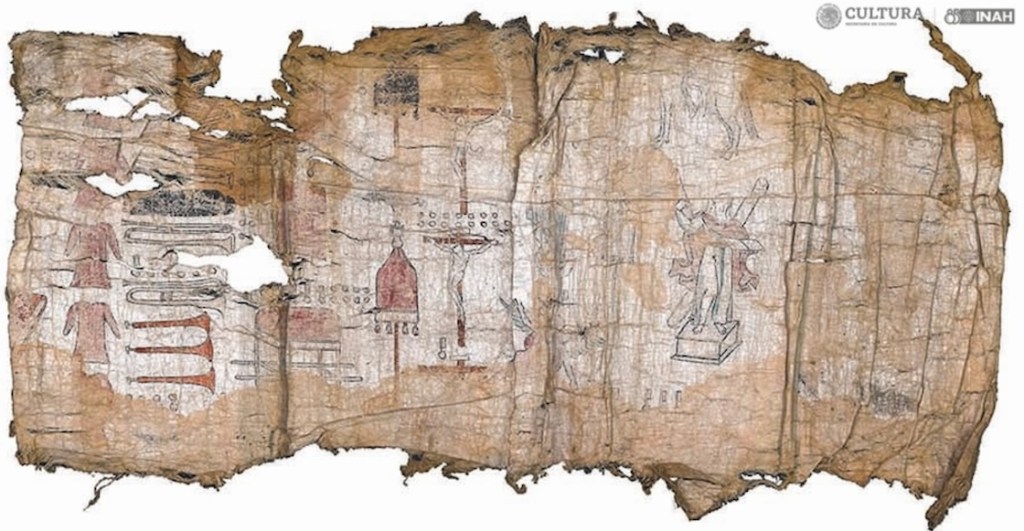 CULTURA
SECRETARÍA DE CULTURA
INAH